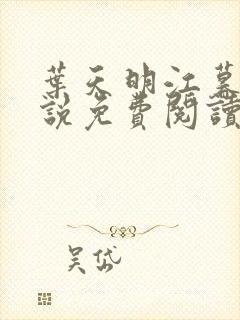 葉天明江慕
說免費閱讀
吴岱